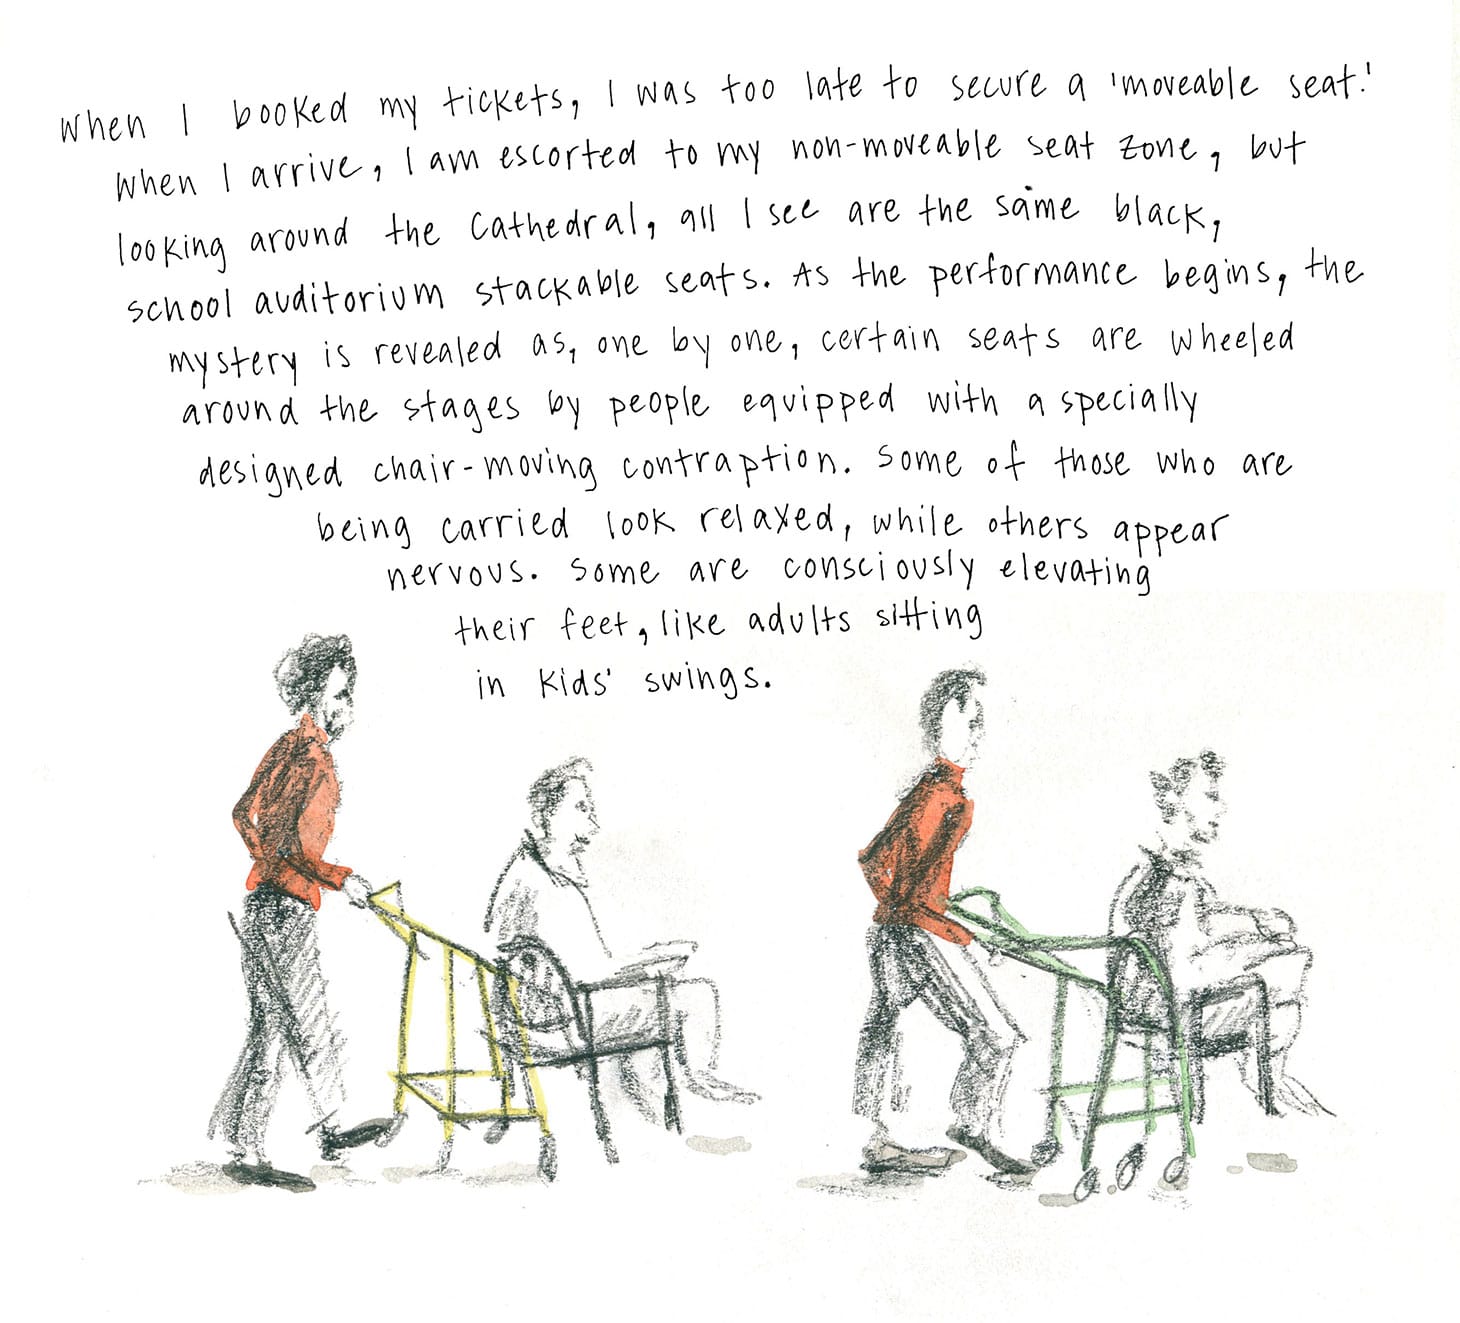 When I booked my tickets, I was too late to secure a 'moveable seat.'
When I arrive, I am escorted to my non-moveable seat zone, but
looking around the Cathedral, all I see are the same black,
school auditorium stackable seats. As the performance begins, the
mystery is revealed as, one by one, certain seats are wheeled
around the stages by people equipped with a specially
designed chair-moving contraption. Some of those who are
being carried look relaxed, while others appear
nervous. Some are consciously elevating
their feet, like adults sitting
in kids' swings.